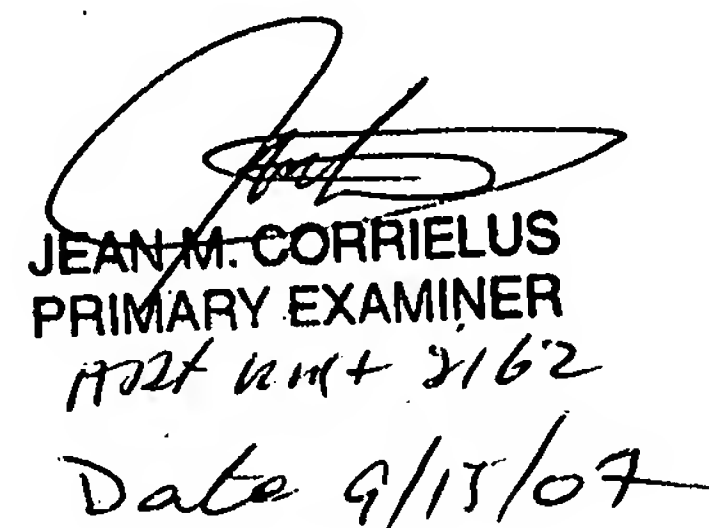 JEAN M. CORRIELUS
PRIMARY EXAMINER
Art Unit 2162
Date 9/15/07